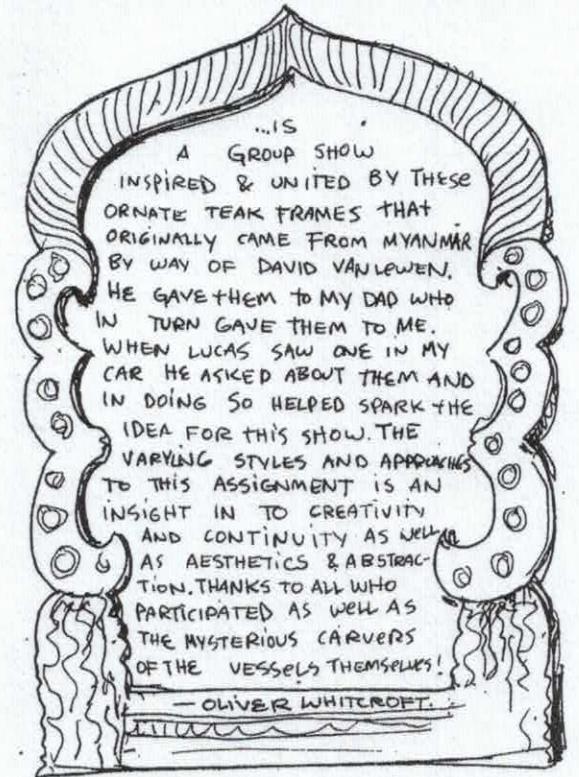 ...IS
A GROUP SHOW
INSPIRED & UNITED BY THESE
ORNATE TEAK FRAMES THAT
ORIGINALLY CAME FROM MYANMAR
BY WAY OF DAVID VAN LEWEN.
HE GAVE THEM TO MY DAD WHO
IN TURN GAVE THEM TO ME.
WHEN LUCAS SAW ONE IN MY
CAR HE ASKED ABOUT THEM AND
IN DOING SO HELPED SPARK THE
IDEA FOR THIS SHOW. THE
VARYING STYLES AND APPROACHES
TO THIS ASSIGNMENT IS AN
INSIGHT IN TO CREATIVITY
AND CONTINUITY AS WELL
AS AESTHETICS & ABSTRAC-
TION. THANKS TO ALL WHO
PARTICIPATED AS WELL AS
THE MYSTERIOUS CARVERS
OF THE VESSELS THEMSELVES!
— OLIVER WHITCROFT.